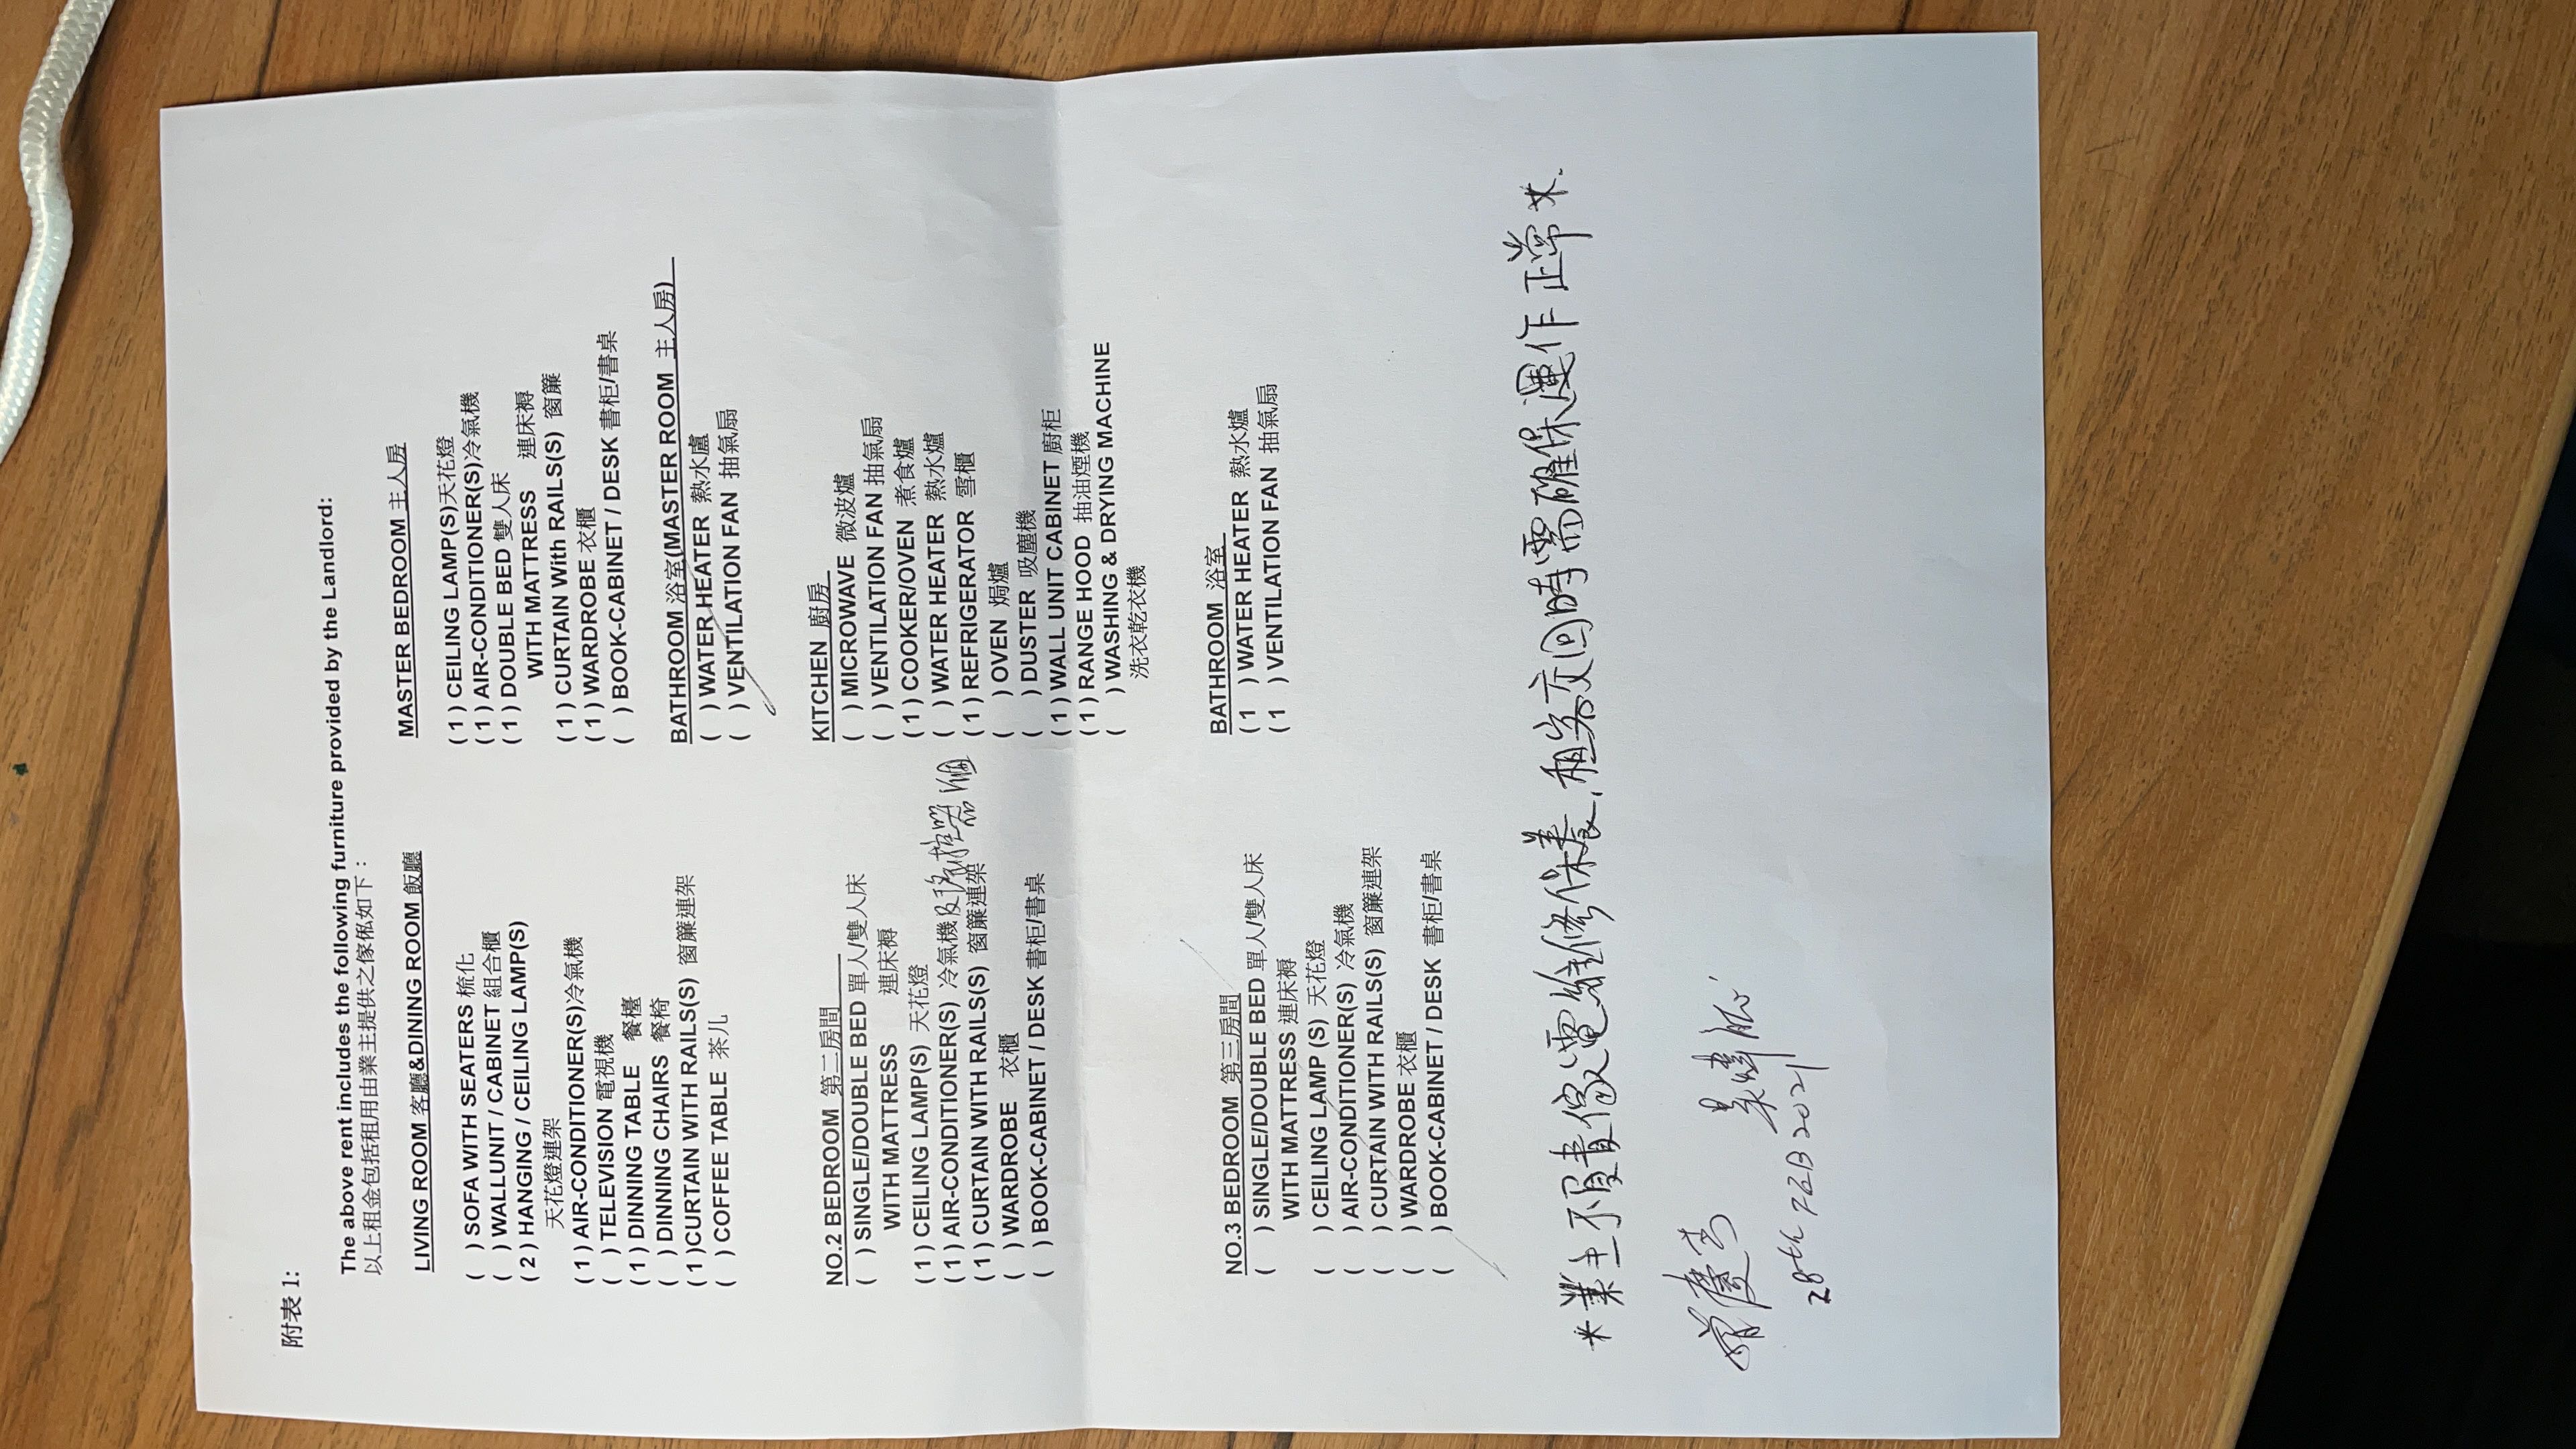 附表 1:
The above rent includes the following furniture provided by the Landlord:
以上租金包括租用由業主提供之傢俬如下：
LIVING ROOM 客廳&DINING ROOM 飯廳
( ) SOFA WITH SEATERS 梳化
( ) WALLUNIT / CABINET 組合櫃
( 2 ) HANGING / CEILING LAMP(S)
天花燈連架
( 1 ) AIR-CONDITIONER(S)冷氣機
( ) TELEVISION 電視機
( 1 ) DINNING TABLE 餐檯
( ) DINNING CHAIRS 餐椅
( 1 )CURTAIN WITH RAILS(S) 窗簾連架
( ) COFFEE TABLE 茶儿
MASTER BEDROOM 主人房
( 1 ) CEILING LAMP(S)天花燈
( 1 ) AIR-CONDITIONER(S)冷氣機
( 1 ) DOUBLE BED 雙人床
WITH MATTRESS 連床褥
( 1 ) CURTAIN With RAILS(S) 窗簾
( 1 ) WARDROBE 衣櫃
( ) BOOK-CABINET / DESK 書柜/書桌
BATHROOM 浴室(MASTER ROOM 主人房)
( ) WATER HEATER 熱水盧
( ) VENTILATION FAN 抽氣扇
NO.2 BEDROOM 第二房間
( ) SINGLE/DOUBLE BED 單人/雙人床
WITH MATTRESS 連床褥
( 1 ) CEILING LAMP(S) 天花燈
( 1 ) AIR-CONDITIONER(S) 冷氣機及遙控器1個
( 1 ) CURTAIN WITH RAILS(S) 窗簾連架
( ) WARDROBE 衣櫃
( ) BOOK-CABINET / DESK 書柜/書桌
KITCHEN 廚房
( ) MICROWAVE 微波爐
( ) VENTILATION FAN 抽氣扇
( 1 ) COOKER/OVEN 煮食爐
( ) WATER HEATER 熱水爐
( 1 ) REFRIGERATOR 雪櫃
( ) OVEN 焗爐
( ) DUSTER 吸塵機
( 1 ) WALL UNIT CABINET 廚柜
( 1 ) RANGE HOOD 抽油煙機
( ) WASHING & DRYING MACHINE
洗衣乾衣機
NO.3 BEDROOM 第三房間
( ) SINGLE/DOUBLE BED 單人/雙人床
WITH MATTRESS 連床褥
( ) CEILING LAMP (S) 天花燈
( ) AIR-CONDITIONER(S) 冷氣機
( ) CURTAIN WITH RAILS(S) 窗簾連架
( ) WARDROBE 衣櫃
( ) BOOK-CABINET / DESK 書柜/書桌
BATHROOM 浴室
( 1 ) WATER HEATER 熱水爐
( 1 ) VENTILATION FAN 抽氣扇
* 業主不負責傢電維修保養, 租客交回時需確保運作正常 *.
28th FEB 2021